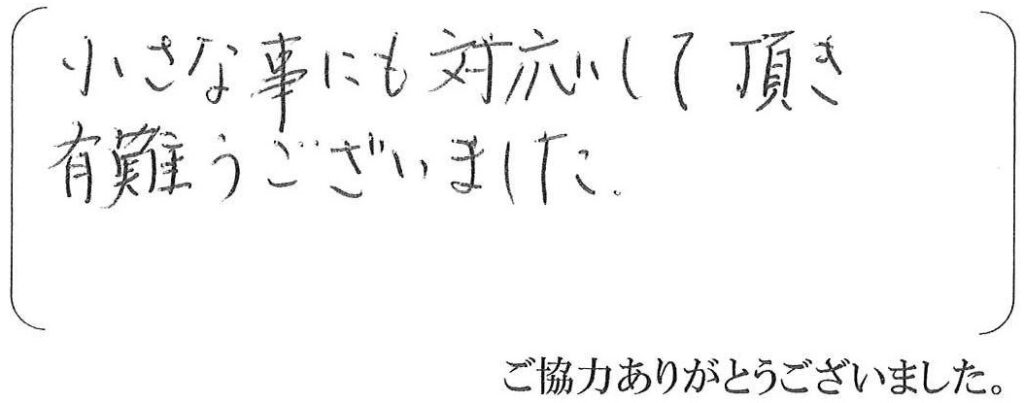 小さな事にも対応して頂き
有難うございました.
ご協力ありがとうございました。